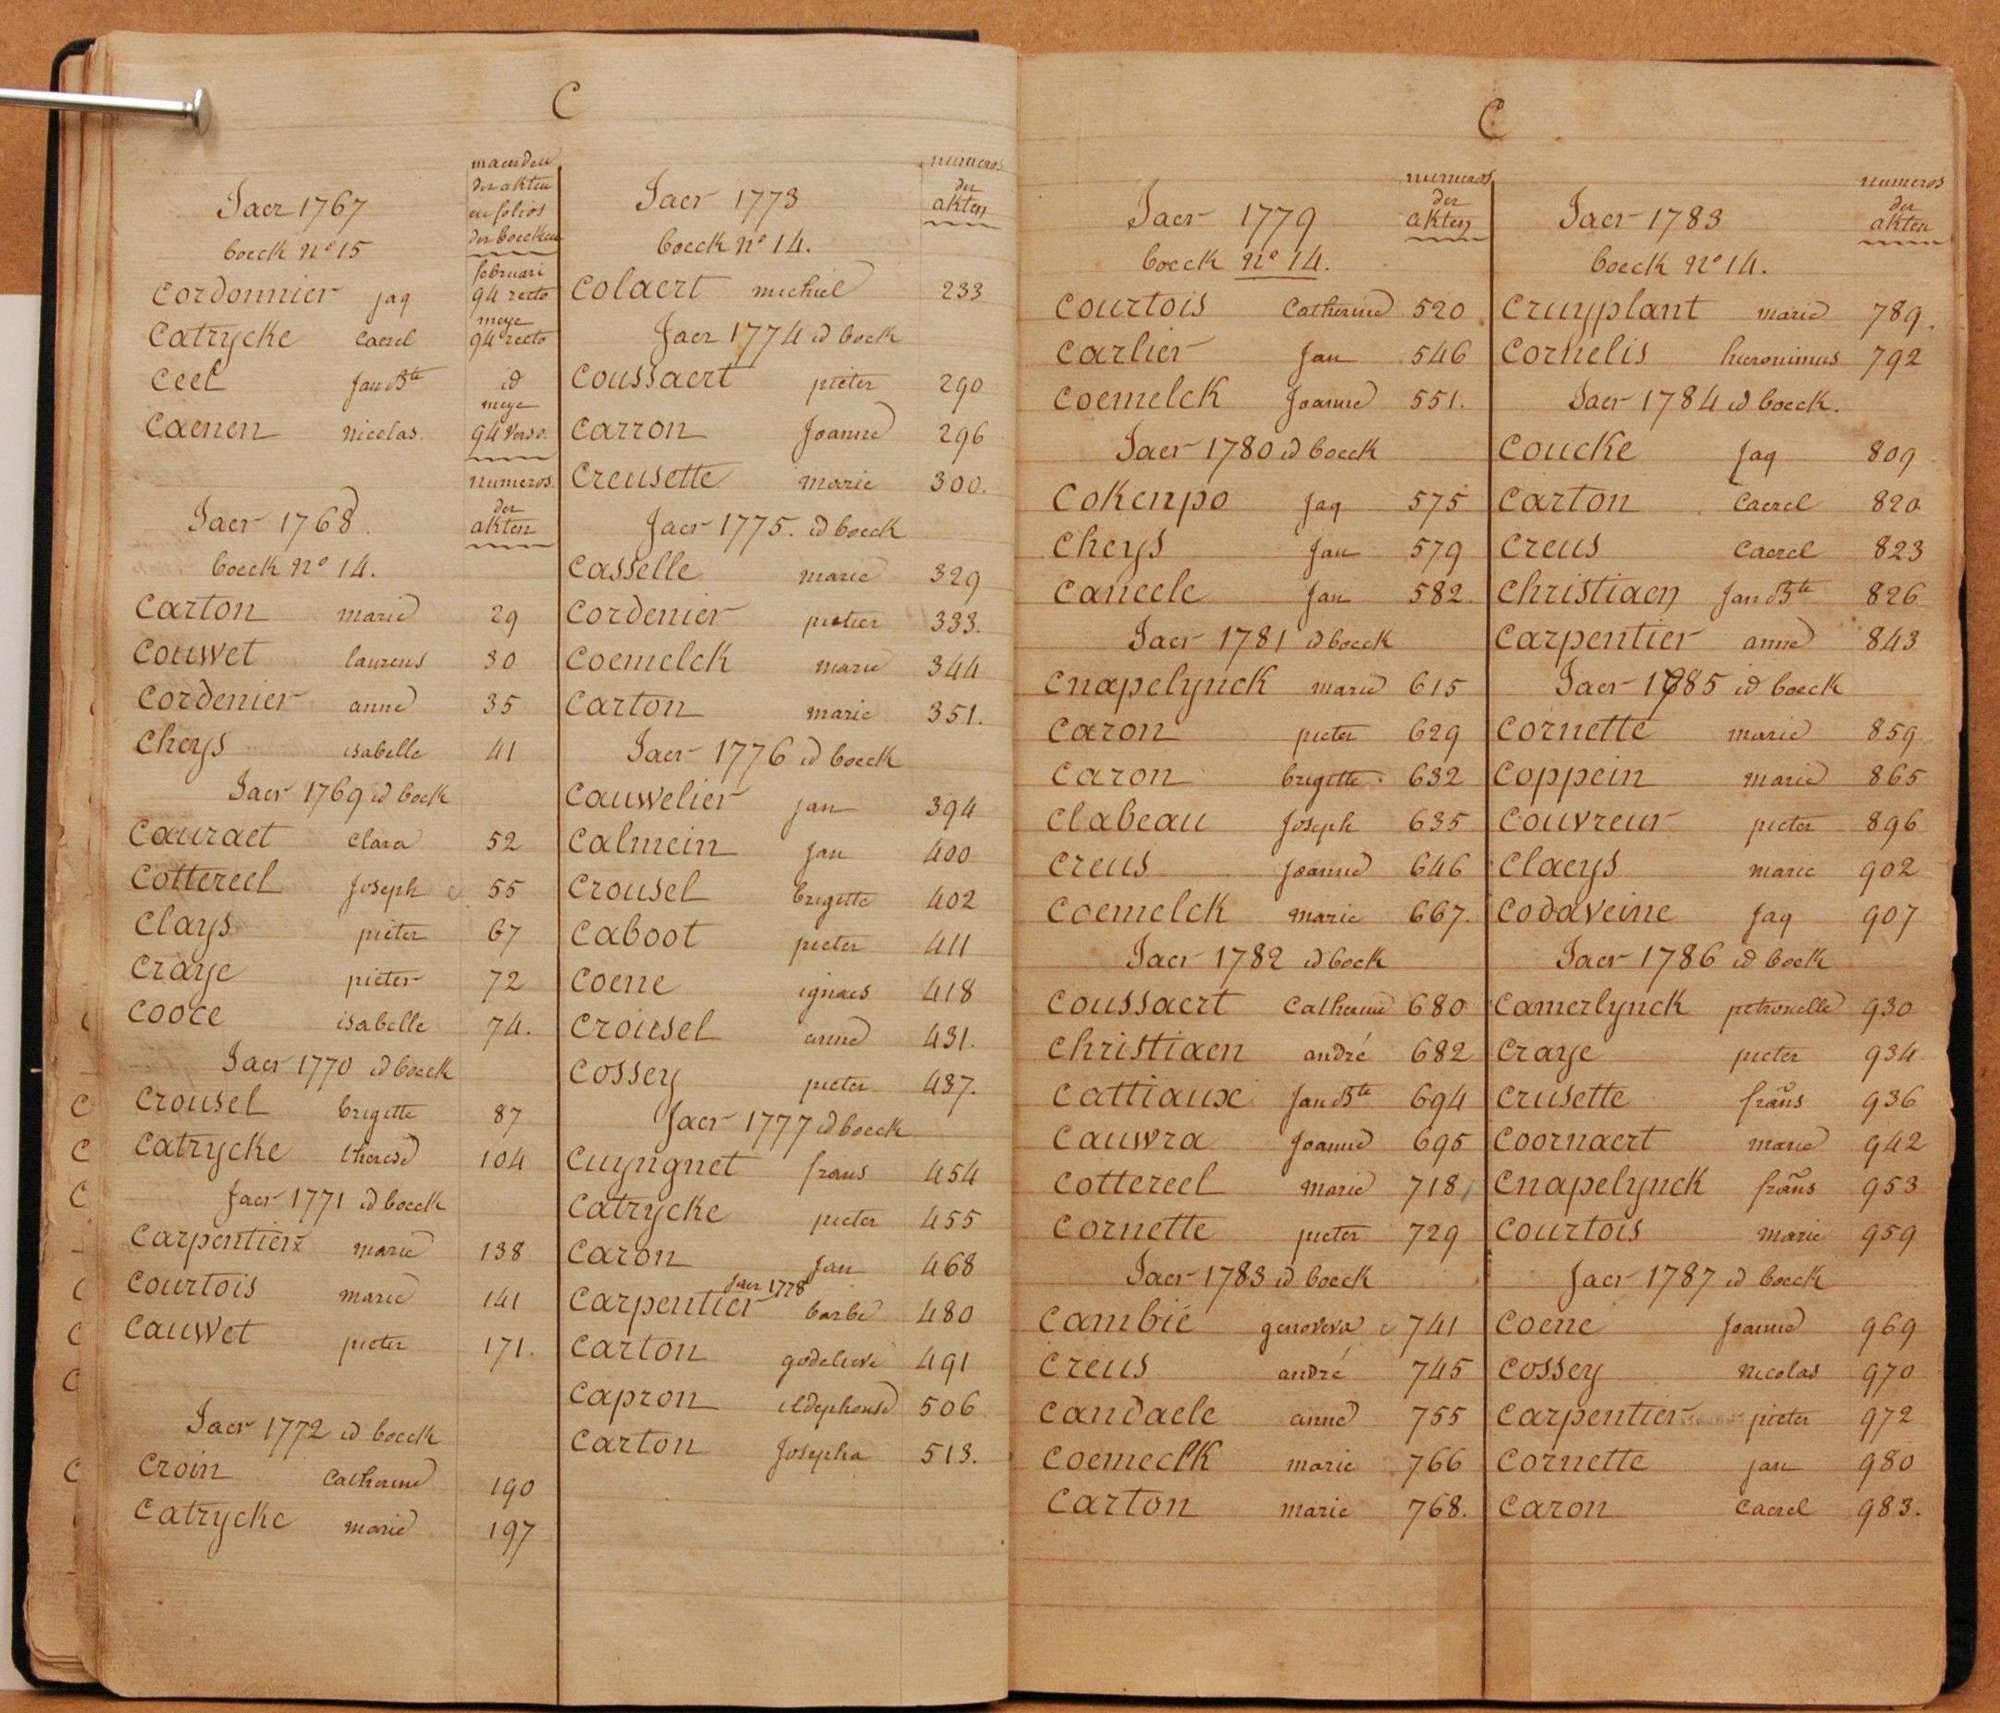 C
maenden
der akten
en folios
der boecken
Jaer 1767
boeck n° 15
februari
Cordonnier jaq 94 recto
meye
Catrycke Caerel 94 recto
Ceel Jan Bte id
meye
Caenen nicolas 94 verso
numeros
der
akten
Jaer 1768
boeck n° 14.
Carton marie 29
Couwet laurens 30
Cordenier anne 35
Cheys isabelle 41
Jaer 1769 id boek
Couraet Clara 52
Cottereel Joseph 55
Clays pieter 67
Craye pieter 72
Cooce isabelle 74.
Jaer 1770 id boeck
Crousel brigitte 87
Catrycke therese 104
Jaer 1771 id boeck
Carpentier marie 138
Courtois marie 141
Cauwet pieter 171.
Jaer 1772 id boeck
Croin Catherine 190
Catrycke marie 197
numeros
der
akten
Jaer 1773
boeck n° 14.
Colaert michiel 233
Jaer 1774 id boek
Coussaert pieter 290
Carron Joanne 296
Creusette marie 300.
Jaer 1775. id boeck
Casselle marie 329
Cordenier pieter 333.
Coemelck marie 344
Carton marie 351.
Jaer 1776 id boeck
Cauwelier jan 394
Calmein jan 400
Crousel brigitte 402
Caboot pieter 411
Coene ignaes 418
Crousel anne 431.
Cossey pieter 437.
Jaer 1777 id boeck
Cuyngnet frans 454
Catrycke pieter 455
Caron jan 468
Jaer 1778
Carpentier barbe 480
Carton godelieve 491
Capron ildephonse 506
Carton Josepha 513.
C
numeros
der
akten
Jaer 1779
boeck n° 14.
Courtois Catherine 520
Carlier Jan 546
Coemelck Joanne 551.
Jaer 1780 id boeck
Cokenpo Jaq 575
Cheys Jan 579
Caneele Jan 582.
Jaer 1781 id boeck
Cnapelynck marie 615
Caron pieter 629
Caron brigitte 632
Clabeau Joseph 635
Creus Joanne 646
Coemelck marie 667.
Jaer 1782 id boek
Coussaert Catherine 680
Christiaen andré 682
Cattiaux Jan Bte 694
Cauwra Joanne 695
Cottereel marie 718
Cornette pieter 729
Jaer 1783 id boeck
Cambié genoveva 741
Creus andré 745
Candaele anne 755
Coemeclk marie 766
Carton marie 768.
numeros
der
akten
Jaer 1783
boeck n° 14.
Cruyplant marie 789.
Cornelis hieronimus 792
Jaer 1784 id boeck.
Coucke Jaq 809
Carton Caerel 820
Creus Caerel 823
Christiaen Jan Bte 826
Carpentier anne 843
Jaer 1785 id boeck
Cornette marie 859
Coppein marie 865
Couvreur pieter 896
Claeys marie 902
Codaveine Jaq 907
Jaer 1786 id boek
Camerlynck petronelle 930
Craye pieter 934
Crusette frans 936
Coornaert marie 942
Cnapelynck frans 953
Courtois marie 959
Jaer 1787 id boeck
Coene Joanne 969
Cossey Nicolas 970
Carpentier pieter 972
Cornette jan 980
Caron Caerel 983.